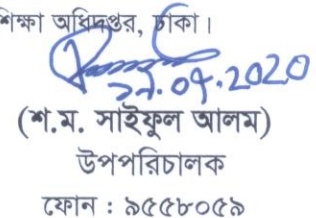 শিক্ষা অধিদপ্তর, ঢাকা।
২৯.০৭.2020
(শ.ম. সাইফুল আলম)
উপপরিচালক
ফোন : ৯৫৫৮০৫৯